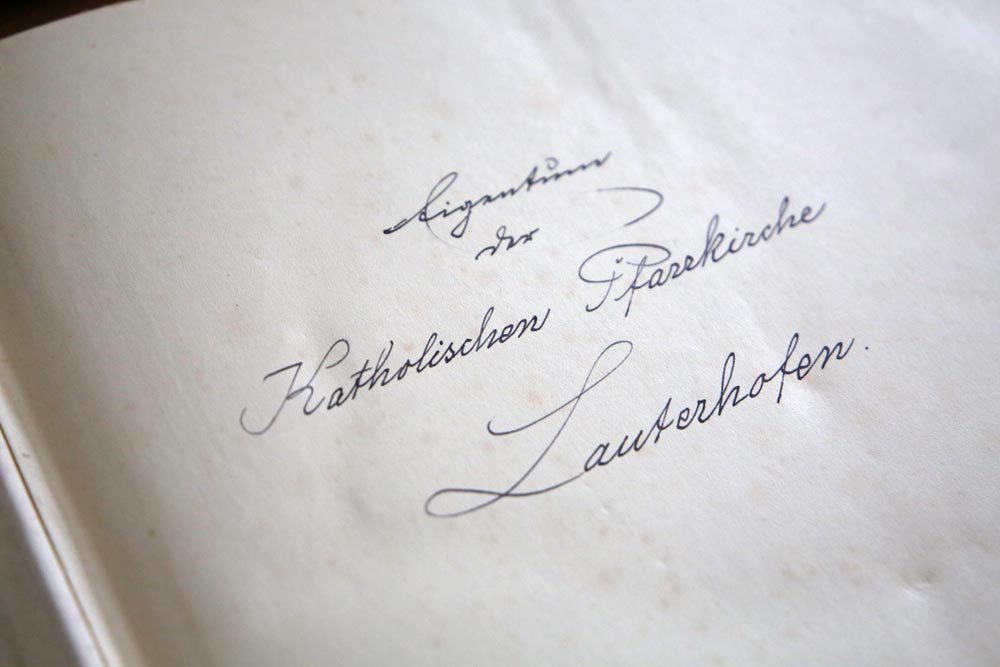 Eigentum
der
Katholischen Pfarrkirche
Lauterhofen.